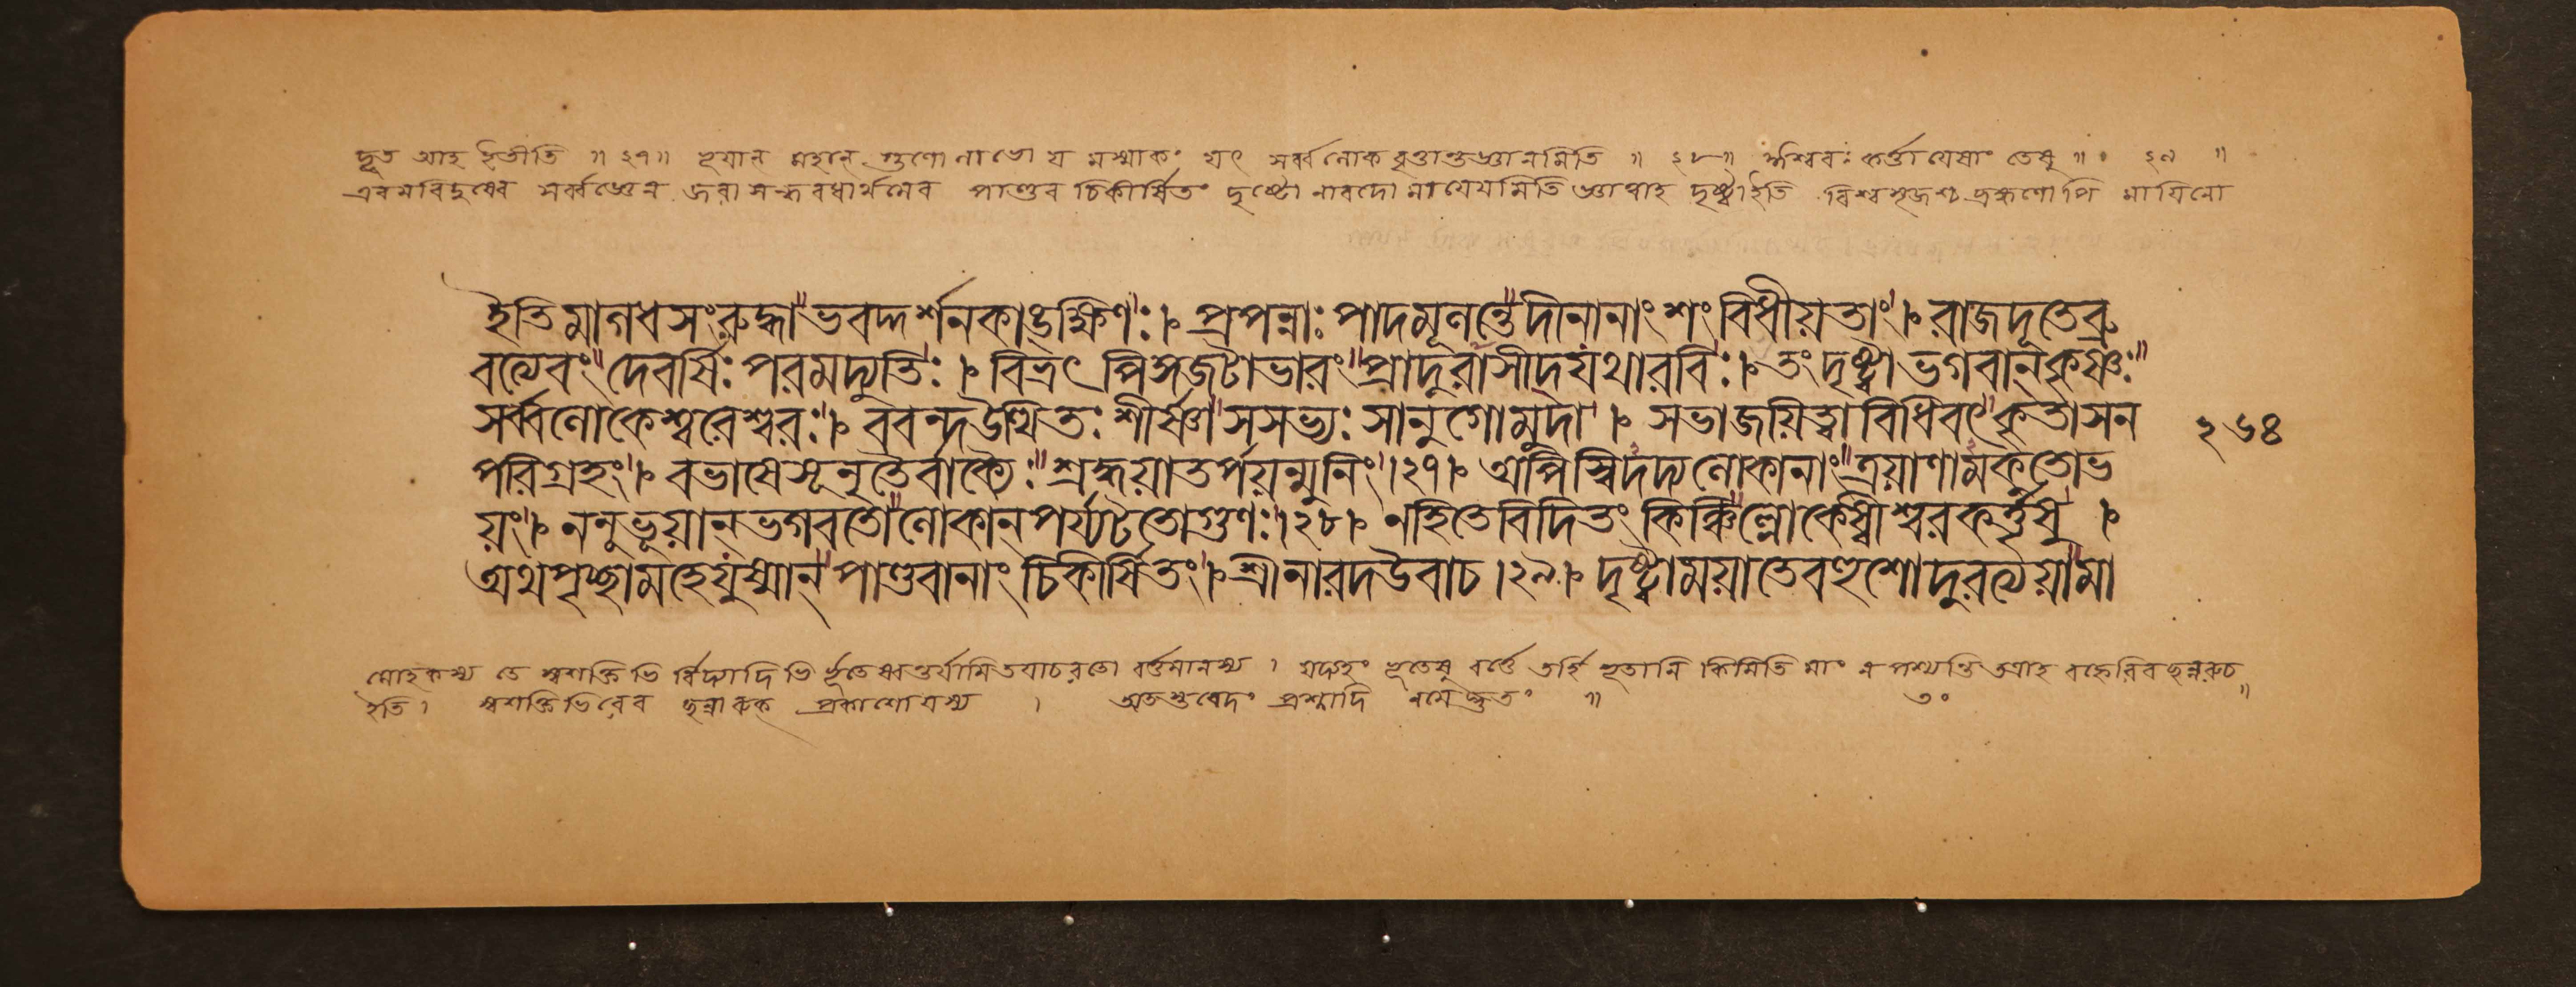 দূত আহ ইতীতি ॥ ২৭॥ ভূয়ান মহান্ গুণো লাভো য মস্মাকং যৎ সর্ব্বলোক বৃত্তান্তজ্ঞানমিতি ॥ ২৮॥ ঈশ্বরঃ কর্ত্তা যেষাং তেষু ॥ ২৯ ॥
এবমবিদুষেব সর্ব্বজ্ঞেন জরাসন্ধবধার্থমেব পাণ্ডব চিকীর্ষিতং পৃষ্টো নারদো মায়েয়মিতি জ্ঞাত্বাহ দৃষ্টেতি বিশ্বসৃজশ্চ ব্রহ্মণোপি মায়িনো
ইতি মাগধসংরুদ্ধা ভবদ্দর্শনকাঙ্ক্ষিণঃ। প্রপন্নাঃ পাদমূলন্তে দীনানাং শং বিধীয়তাং। রাজদূতে ব্রু
বত্যেবং দেবর্ষিঃ পরমদ্যুতিঃ। বিভ্রৎ পিঙ্গজটাভারং প্রাদুরাসীদ্ যথা রবিঃ। তং দৃষ্ট্বা ভগবান্ কৃষ্ণঃ
সর্ব্বলোকেশ্বরেশ্বরঃ। ববন্দ উত্থিতঃ শীর্ষ্ণা সসভ্যঃ সানুগো মুদা। সভাজয়িত্বা বিধিবৎ কৃতাসন
২৬৪
পরিগ্রহং। বভাষে সূনৃতৈর্বাক্যৈঃ শ্রদ্ধয়া তর্পয়ন্মুনিং।২৭। অপিস্বিদদ্য লোকানাং ত্রয়াণামকুতোভ
য়ং। ননু ভূয়ান্ ভগবতো লোকান্ পর্য্যটতো গুণঃ।২৮। নহি তেবিদিতং কিঞ্চিল্লোকেষ্বীশ্বরকর্ত্তৃষু।
অথ পৃচ্ছামহে যুষ্মান্ পাণ্ডবানাং চিকীর্ষিতং। শ্রীনারদ উবাচ।২৯। দৃষ্ট্বা ময়া তে বহুশো দুরত্যয়া মা
মোহকস্য তে স্বশক্তিভি র্বিদ্যাদিভি র্ভূতেষ্বন্তর্যামিতয়াচরতো বর্ত্তমানস্য। যদ্যহং ভূতেষু বর্ত্তে তর্হি ভূতানি কিমিতি মাং ন পশ্যন্তি তত্রাহ বহ্নেরিবচ্ছন্নরুচ
ইতি। স্বশক্তিভিরেব ছন্না রুক্ প্রকাশো যস্য। অতস্তবেদং প্রশ্নাদি নমেদ্ভুতং ॥ ৩০ ॥